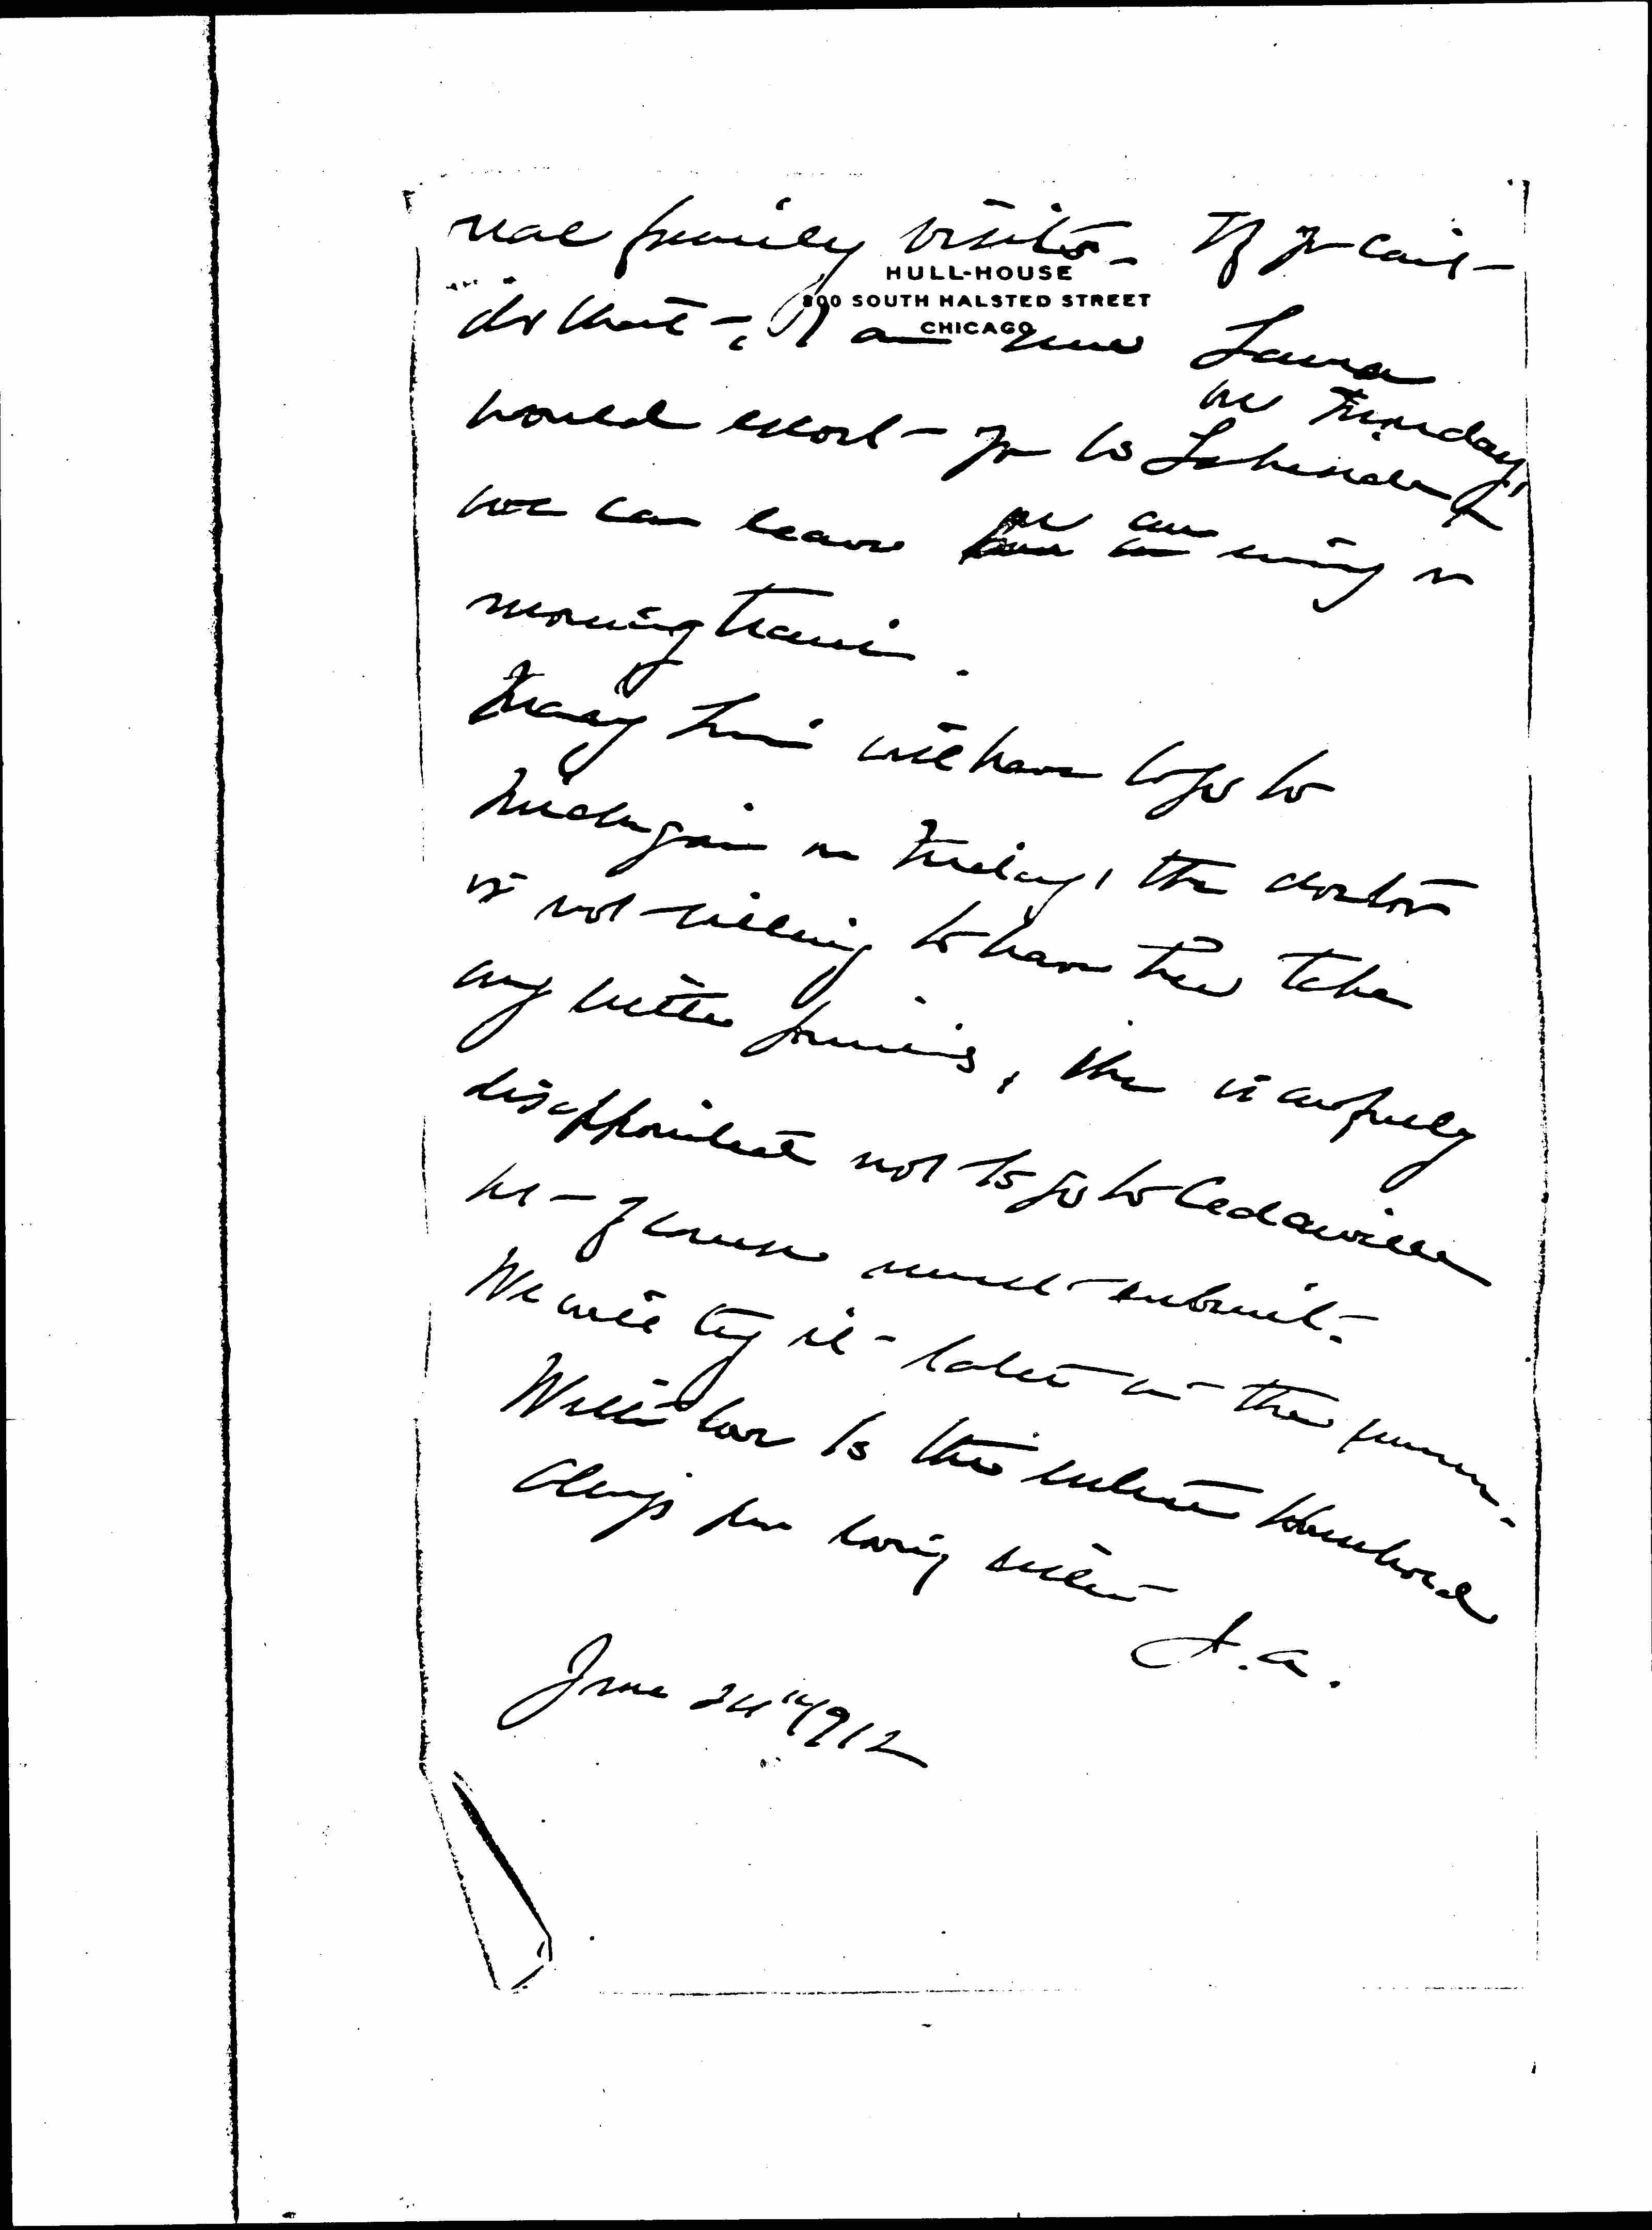 real family visit - If you can't
HULL-HOUSE
800 SOUTH HALSTED STREET
CHICAGO
do that -, I am sure Laura
on Thursday,
would escort - you to Lakeside
we can leave on an evening or
morning train.
Mary will have to go to
Michigan on Friday, the doctor
is not willing to have her take
any further journeys, she is awfully
disappointed not to go to Cedarville
but - of course must submit -
We will try it - later in the summer -
With love to the entire household
always your loving sister
J. A.
June 24" 1912